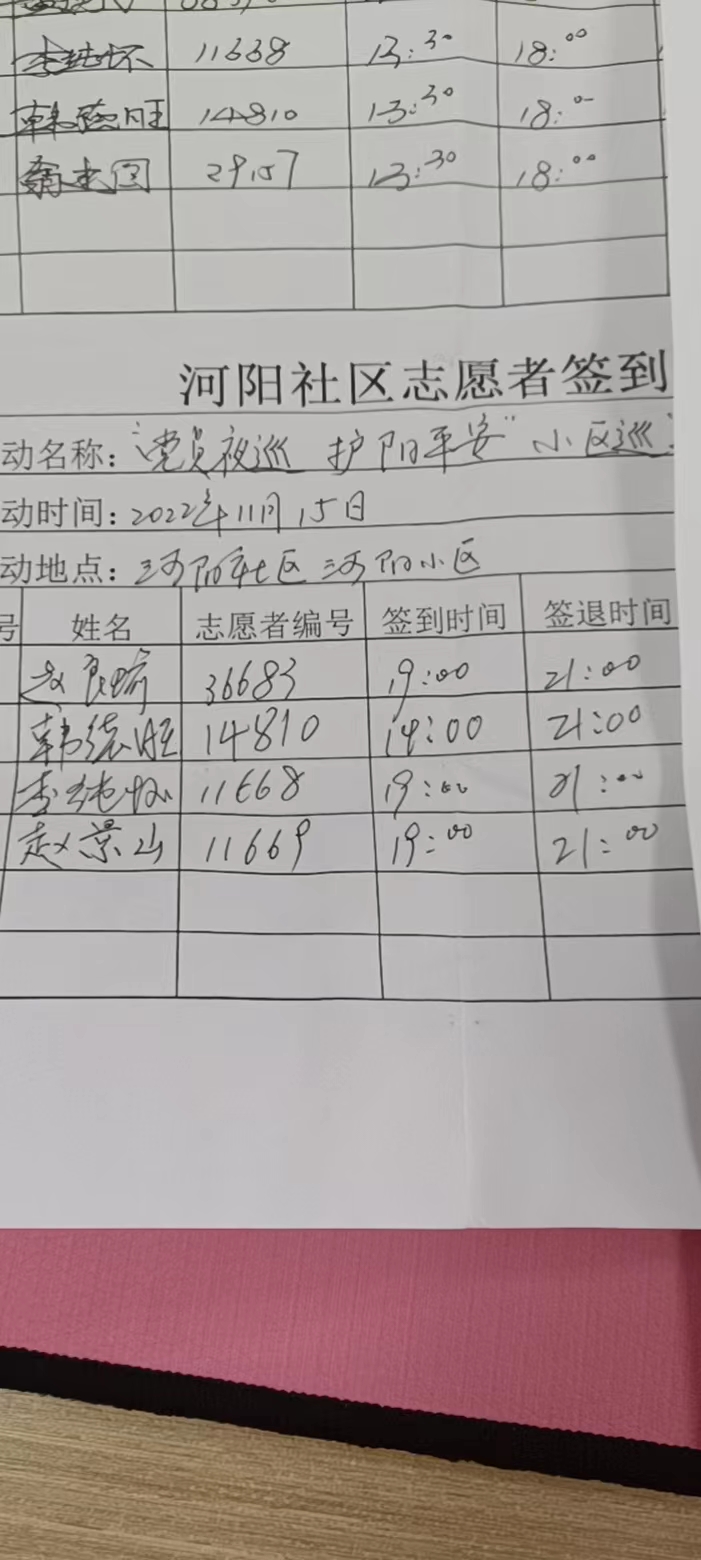 11638 13:30 18:00
韩德旺 14810 13:30 18:00
29157 13:30 18:00
河阳社区志愿者签到
动名称:“党员夜巡 护阳平安”小区巡
动时间:2022年11月15日
动地点:河阳社区河阳小区
号 姓名 志愿者编号 签到时间 签退时间
赵 36683 19:00 21:00
韩德旺 14810 19:00 21:00
李纯怀 11668 19:00 21:00
赵景山 11669 19:00 21:00